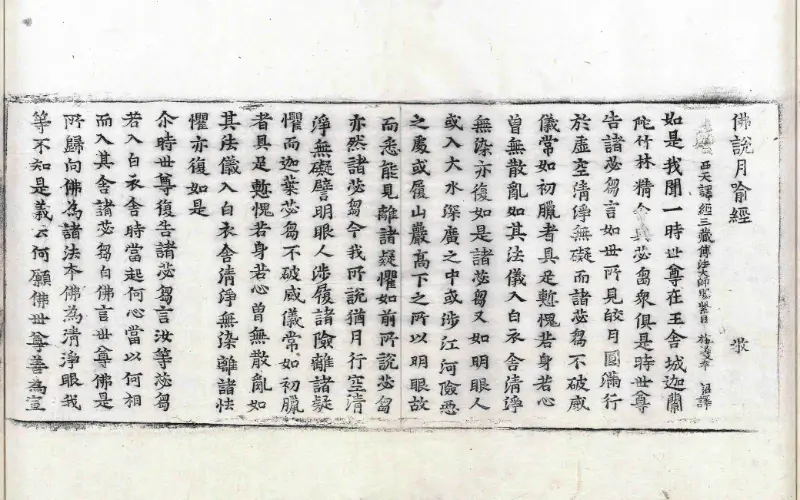 佛說月喻經 敬
西天譯經三藏傳法大師賜紫臣施護奉 詔譯
如是我聞一時世尊在王舍城迦蘭
陀竹林精舍與苾芻衆俱是時世尊
告諸苾芻言如世所見皎月圓滿行
於虛空清淨無礙而諸苾芻不破威
儀常如初臘者具足慙愧若身若心
曾無散亂如其法儀入白衣舍清淨
無染亦復如是諸苾芻又如明眼人
或入大水深廣之中或涉江河險惡
之處或履山巖高下之所以明眼故
而悉能見離諸疑懼如前所說苾芻
亦然諸苾芻今我所說猶月行空清
淨無礙譬明眼人涉履諸險離諸疑
懼而迦葉苾芻不破威儀常如初臘
者具足慙愧若身若心曾無散亂如
其法儀入白衣舍清淨無染離諸怯
懼亦復如是
尒時世尊復告諸苾芻言汝等苾芻
若入白衣舍時當起何心當以何相
而入其舍諸苾芻白佛言世尊佛是
所歸向佛為諸法本佛為清淨眼我
等不知是義云何願佛世尊善為宣